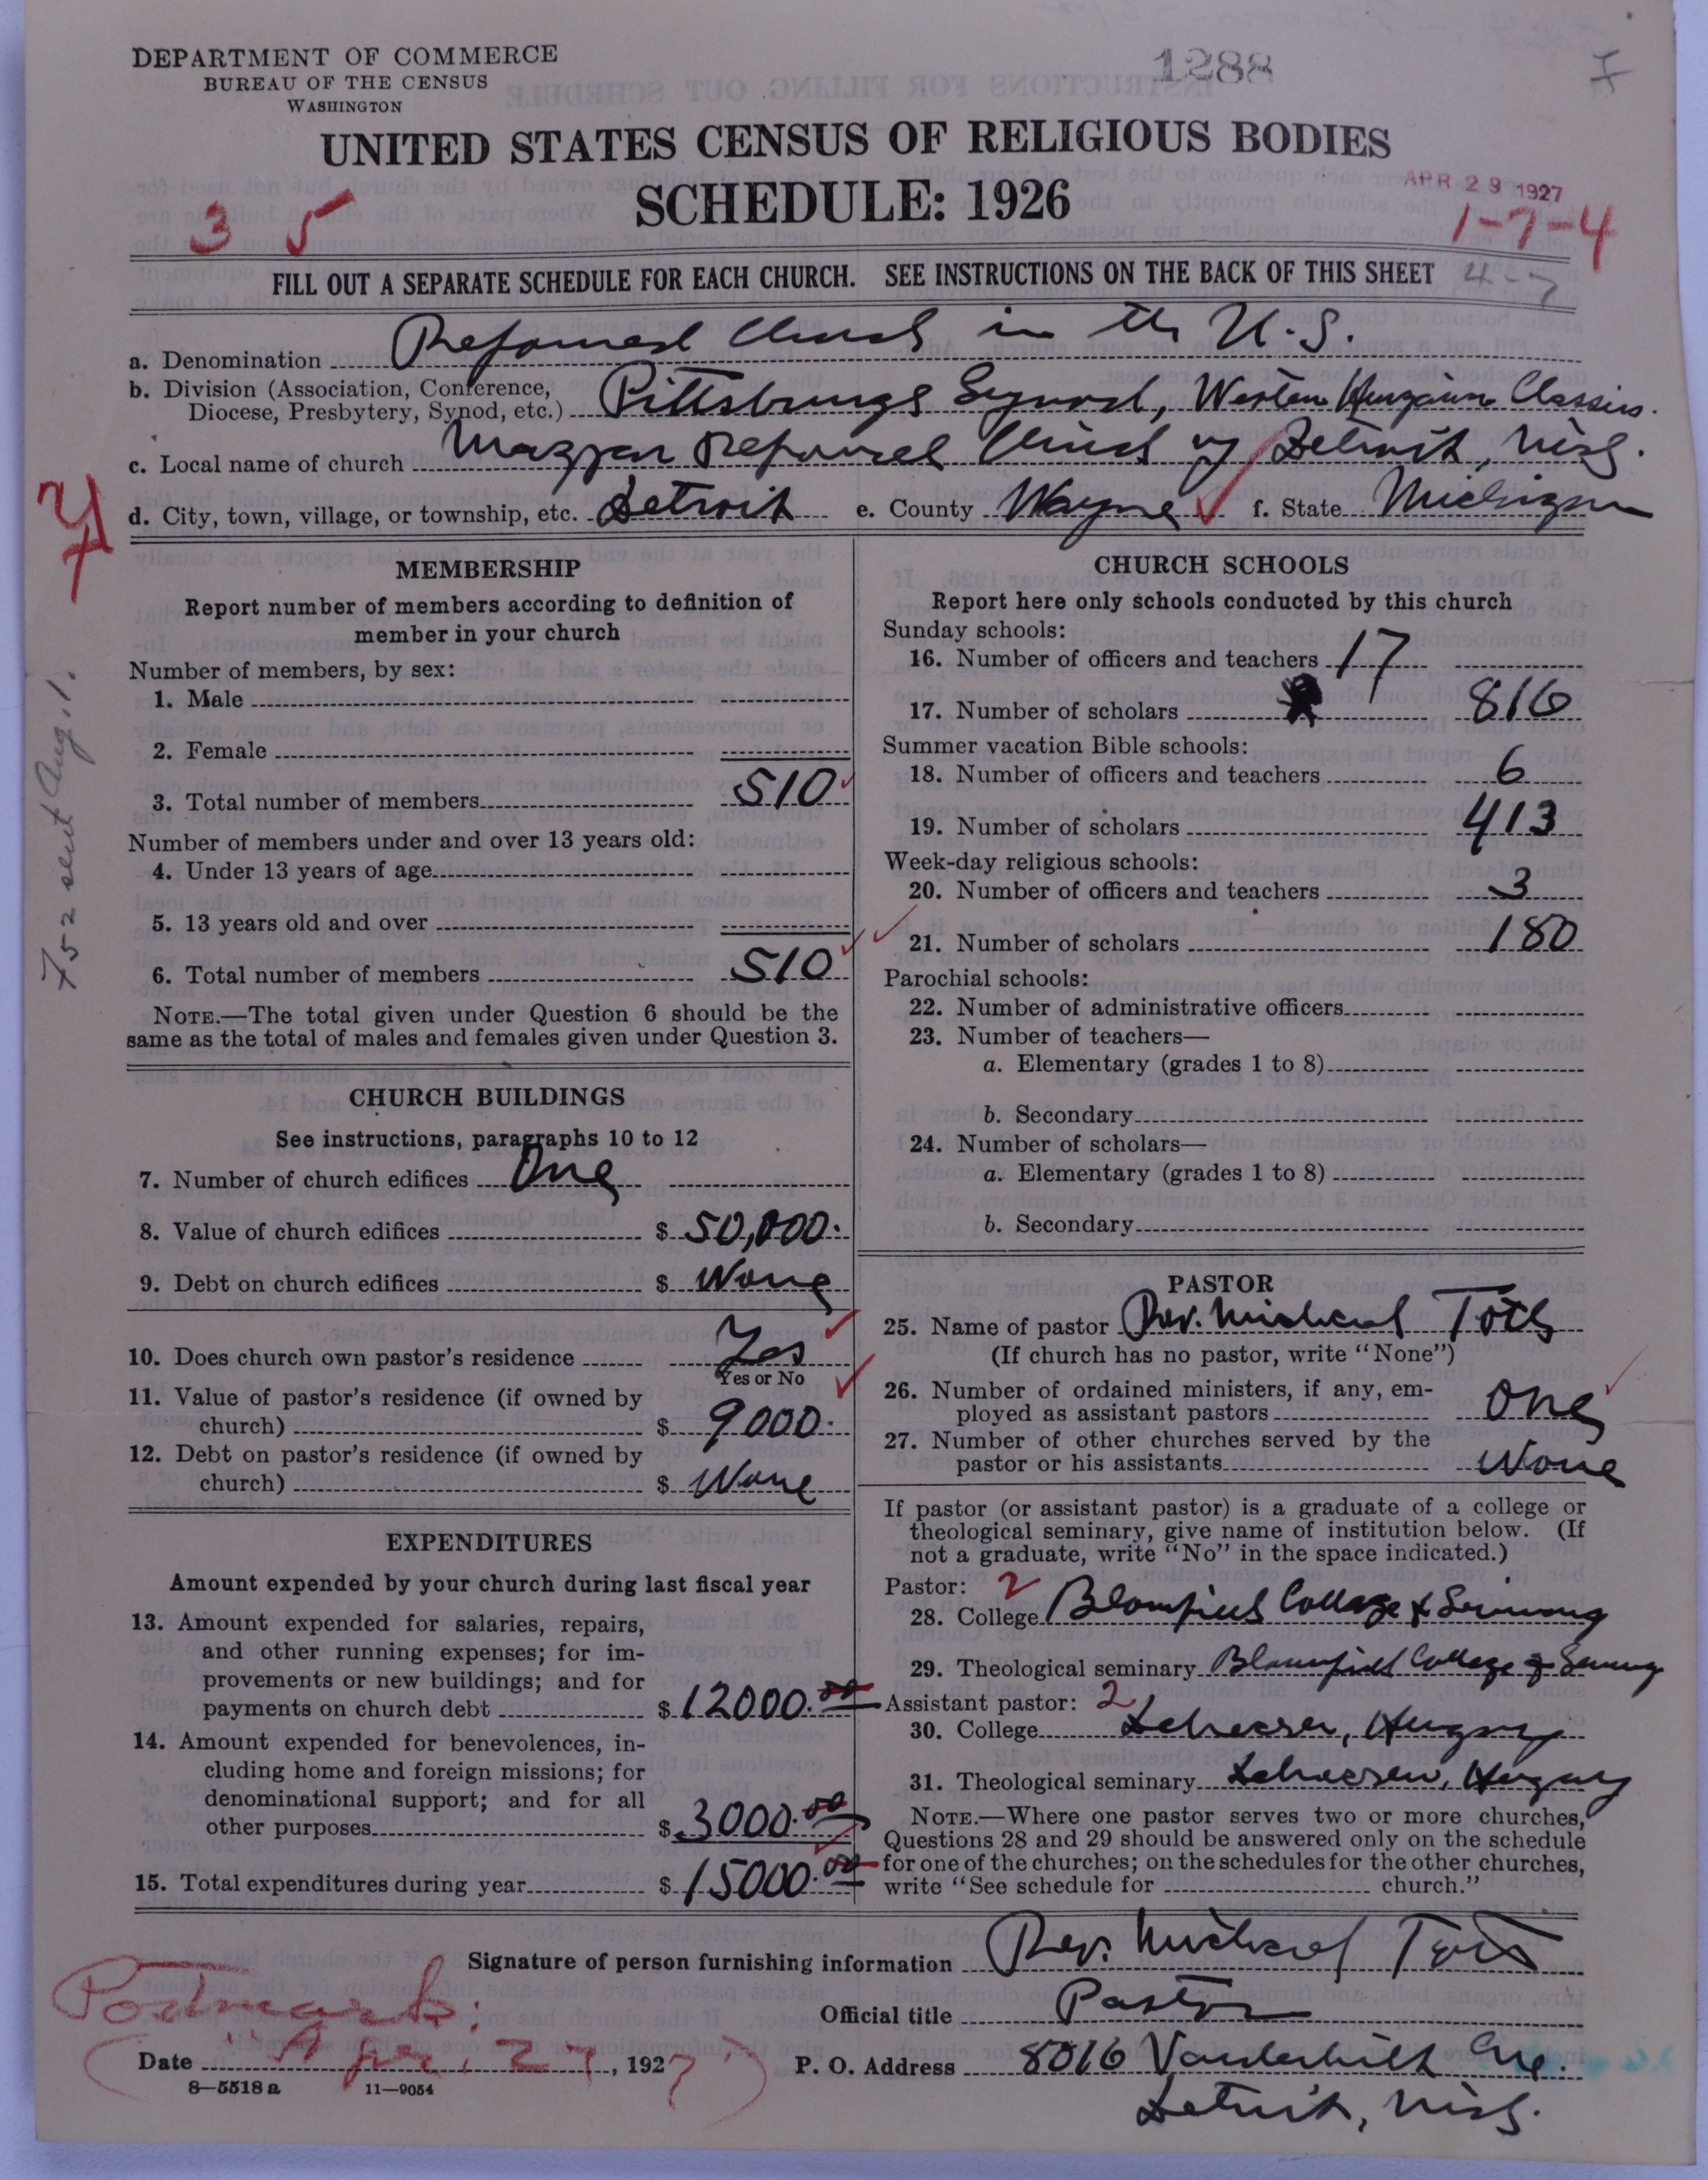 DEPARTMENT OF COMMERCE
BUREAU OF THE CENSUS
WASHINGTON
1288
UNITED STATES CENSUS OF RELIGIOUS BODIES
SCHEDULE: 1926
APR 29 1927
3 5
1-7-4
FILL OUT A SEPARATE SCHEDULE FOR EACH CHURCH. SEE INSTRUCTIONS ON THE BACK OF THIS SHEET 4-7
a. Denomination Reformed Church in the U.S.
b. Division (Association, Conference,
Diocese, Presbytery, Synod, etc.) Pittsburgh Synod, Western Hungarian Classis.
c. Local name of church Magyar Reformed Church of Detroit, Mich.
d. City, town, village, or township, etc. Detroit e. County Wayne f. State Michigan
752 sent Aug. 1.
MEMBERSHIP
Report number of members according to definition of
member in your church
Number of members, by sex:
1. Male
2. Female
3. Total number of members 510
Number of members under and over 13 years old:
4. Under 13 years of age
5. 13 years old and over
6. Total number of members 510
NOTE.—The total given under Question 6 should be the
same as the total of males and females given under Question 3.
CHURCH BUILDINGS
See instructions, paragraphs 10 to 12
7. Number of church edifices One
8. Value of church edifices $ 50,000.
9. Debt on church edifices $ None
10. Does church own pastor's residence Yes
Yes or No
11. Value of pastor's residence (if owned by
church) $ 9000.
12. Debt on pastor's residence (if owned by
church) $ None
EXPENDITURES
Amount expended by your church during last fiscal year
13. Amount expended for salaries, repairs,
and other running expenses; for im-
provements or new buildings; and for
payments on church debt $ 12000.00
14. Amount expended for benevolences, in-
cluding home and foreign missions; for
denominational support; and for all
other purposes $ 3000.00
15. Total expenditures during year $ 15000.00
CHURCH SCHOOLS
Report here only schools conducted by this church
Sunday schools:
16. Number of officers and teachers 17
17. Number of scholars 816
Summer vacation Bible schools:
18. Number of officers and teachers 6
19. Number of scholars 413
Week-day religious schools:
20. Number of officers and teachers 3
21. Number of scholars 180
Parochial schools:
22. Number of administrative officers
23. Number of teachers—
a. Elementary (grades 1 to 8)
b. Secondary
24. Number of scholars—
a. Elementary (grades 1 to 8)
b. Secondary
PASTOR
25. Name of pastor Rev. Michael Toth
(If church has no pastor, write "None")
26. Number of ordained ministers, if any, em-
ployed as assistant pastors One
27. Number of other churches served by the
pastor or his assistants None
If pastor (or assistant pastor) is a graduate of a college or
theological seminary, give name of institution below. (If
not a graduate, write "No" in the space indicated.)
Pastor: 2
28. College Bloomfield College & Seminary
29. Theological seminary Bloomfield College & Seminary
Assistant pastor: 2
30. College
31. Theological seminary
NOTE.—Where one pastor serves two or more churches,
Questions 28 and 29 should be answered only on the schedule
for one of the churches; on the schedules for the other churches,
write "See schedule for church."
Signature of person furnishing information Rev. Michael Toth
Official title Pastor
Postmark:
Date Apr. 27, 1927
P. O. Address 8016 Vanderbilt Ave.
Detroit, Mich.
8—5518 a 11—9054